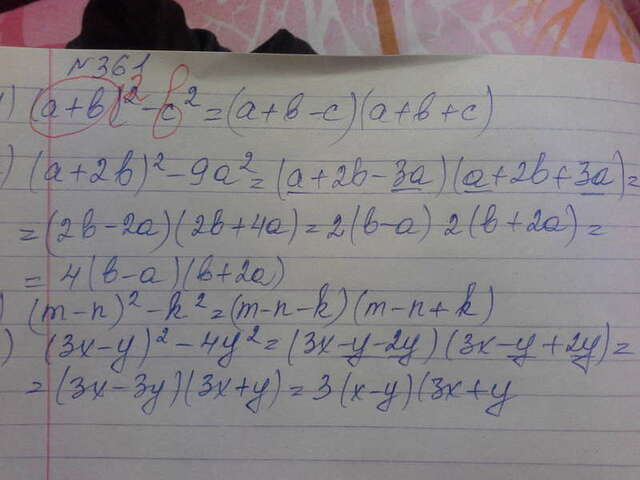 №361
) (a+b)²-c²=(a+b-c)(a+b+c)
) (a+2b)²-9a²=(a+2b-3a)(a+2b+3a)=
=(2b-2a)(2b+4a)=2(b-a) 2(b+2a)=
= 4(b-a)(b+2a)
) (m-n)²-k²=(m-n-k)(m-n+k)
) (3x-y)²-4y²=(3x-y-2y)(3x-y+2y)=
=(3x-3y)(3x+y)=3(x-y)(3x+y